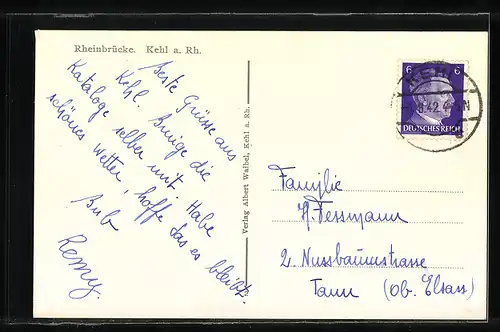 Rheinbrücke. Kehl a. Rh.
Beste Grüsse aus
Kehl. Bringe die
Kataloge selber mit. Habe
schönes Wetter, hoffe das es bleibt.
Bub
Remy.
Verlag Albert Waibel, Kehl a. Rh.
6 6
DEUTSCHES REICH
KEHL
8.42
Familie
H. Fessmann
2. Nussbaumstrasse
Tann (Ob. Elsass)